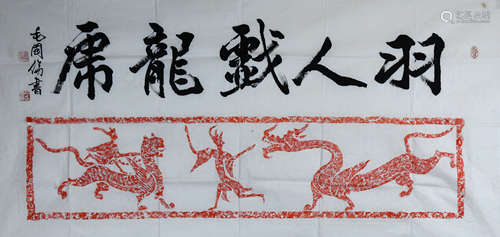 羽人戲龍虎
毛國倫書